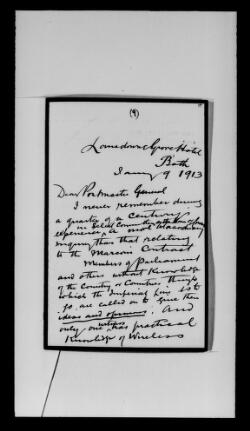 (4)
Lansdowne Grove Hotel
Bath
Jany 9 1913
Dear Postmaster General
I never remember during
a quarter of a century
in Select Committee
experience, a most extraordinary
inquiry than that relating
to the Marconi Contract
Members of Parliament
and others without Knowledge
of the Country or Countries through
which the Imperial Line is to
go are called on to give their
ideas and opinions. And
only one witness has practical
Knowledge of Wireless